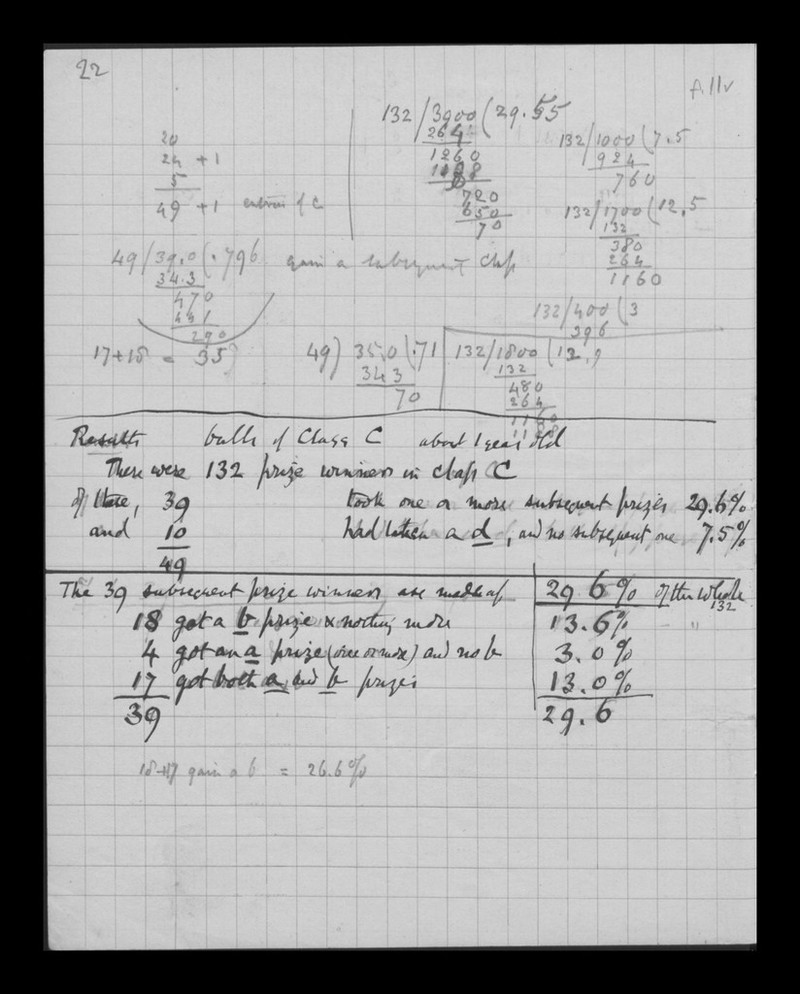 22
A 11v
20
24 + 1
5
49 + 1 entries of C
132/3900(29.55
264
1260
1188
720
650
70
132/1000(7.5
924
760
132/1700(12.5
132
380
264
1160
49/39.0(.796 gain a subsequent class
34.3
470
441
290
17+18 = 35
132/400(3
396
49) 35,0(.71
343
70
132/1800(13,9
132
480
264
1160
1188
Results bulls of Class C about 1 year old
There were 132 prize winners in class C
of these, 39 took one or more subsequent prizes 29.6%
and 10 had taken a d, and no subsequent one 7.5%
49
The 39 subsequent prize winners are made up 29.6% of the whole 132
18 got a b prize & nothing more 13.6% "
4 got an a prize (one or more) and no b 3.0%
17 got both a and b prizes 13.0%
39 29.6
18+17 gain a b = 26.6%